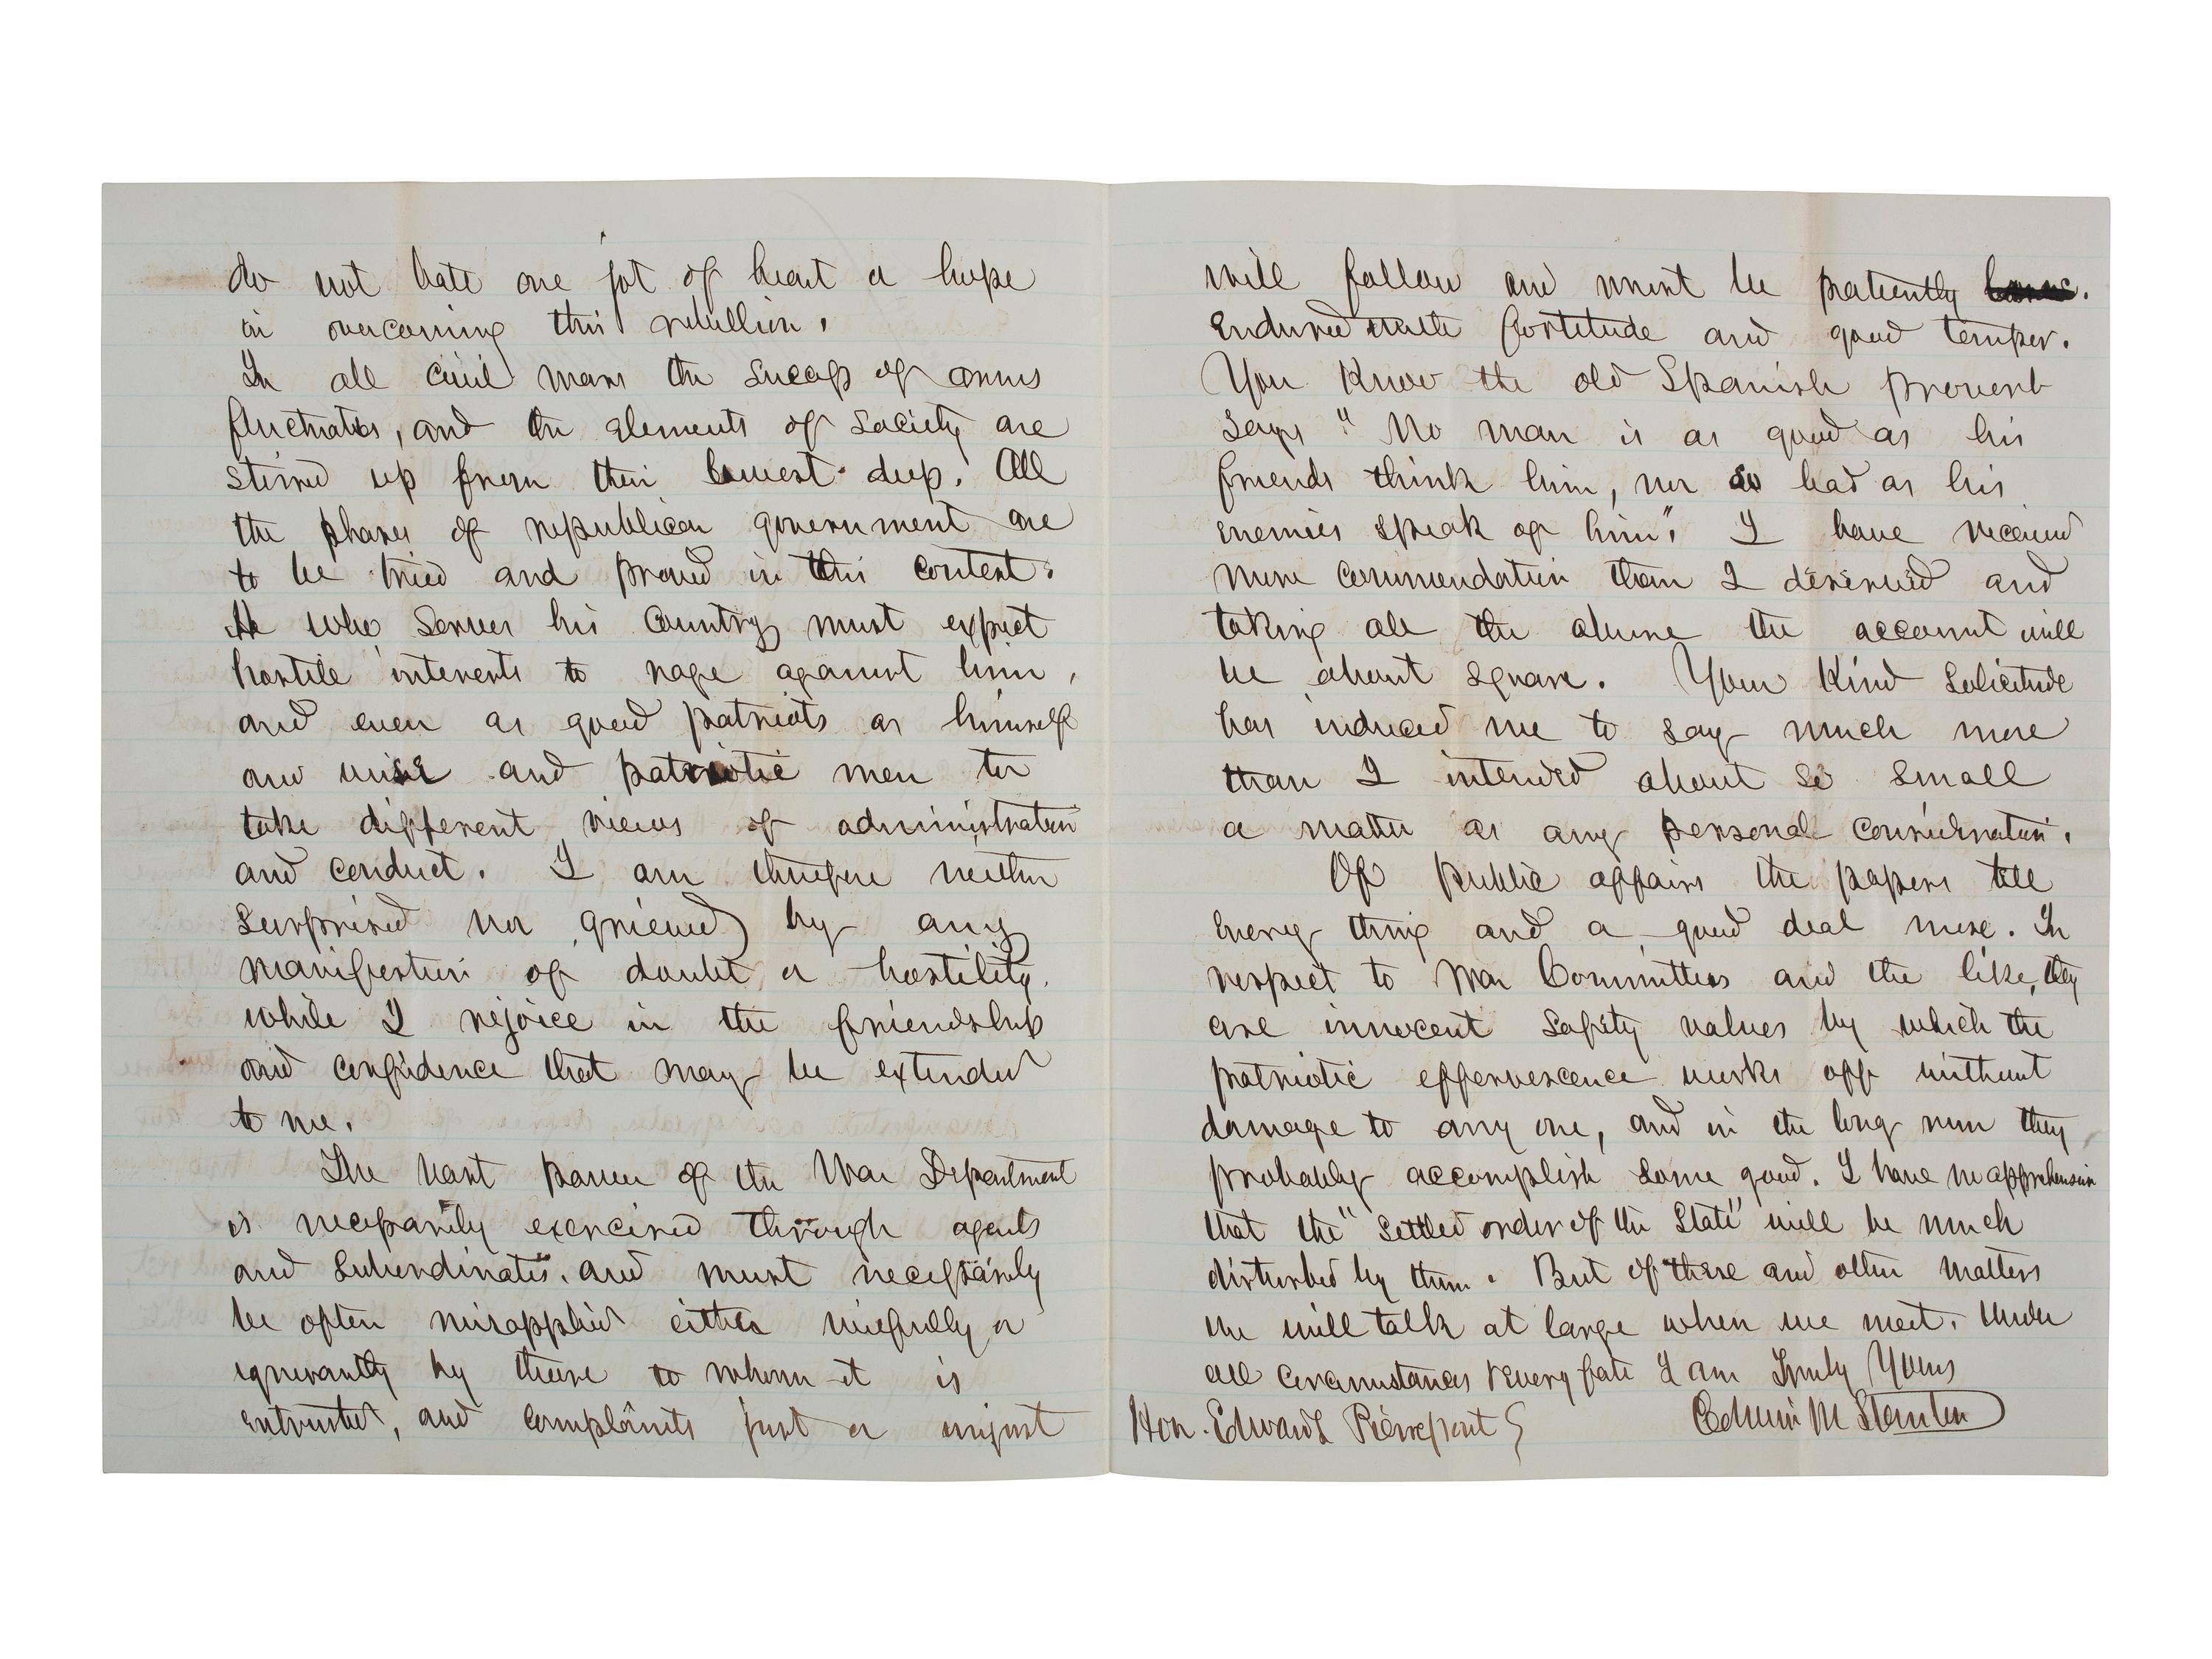 do not bate one jot of heart or hope
in overcoming this rebellion.
In all civil wars the success of arms
fluctuates, and the elements of society are
stirred up from their lowest deep. All
the phases of republican government are
to be tried and proved in this contest.
He who serves his Country must expect
hostile interests to rage against him,
and even as good patriots as himself
and wise and patriotic men to
take different views of administration
and conduct. I am therefore neither
surprised nor grieved by any
manifestation of doubt or hostility.
while I rejoice in the friendship
and confidence that may be extended
to me.
The vast power of the War Department
is necessarily exercised through agents
and Subordinates. and must necessarily
be often misapplied either wilfully or
ignorantly by those to whom it is
entrusted, and complaints just or unjust
will follow and must be patiently borne.
Endured with fortitude and good temper.
You Know the old Spanish proverb
says "No man is as good as his
friends think him, nor so bad as his
enemies speak of him". I have received
more commendation than I deserved and
taking all the abuse the account will
be about square. Your Kind Solicitude
has induced me to say much more
than I intended about so small
a matter as any personal consideration.
Of Public affairs the papers tell
every thing and a good deal more. In
respect to War Committees and the like, they
are innocent safety valves by which the
patriotic effervescence works off without
damage to any one, and in the long run they
probably accomplish some good. I have no apprehension
that the "settled order of the State" will be much
disturbed by them. But of these and other matters
we will talk at large when we meet. Under
all circumstances & every fate I am Truly Yours
Hon. Edwards Pierrepont Edwin M Stanton